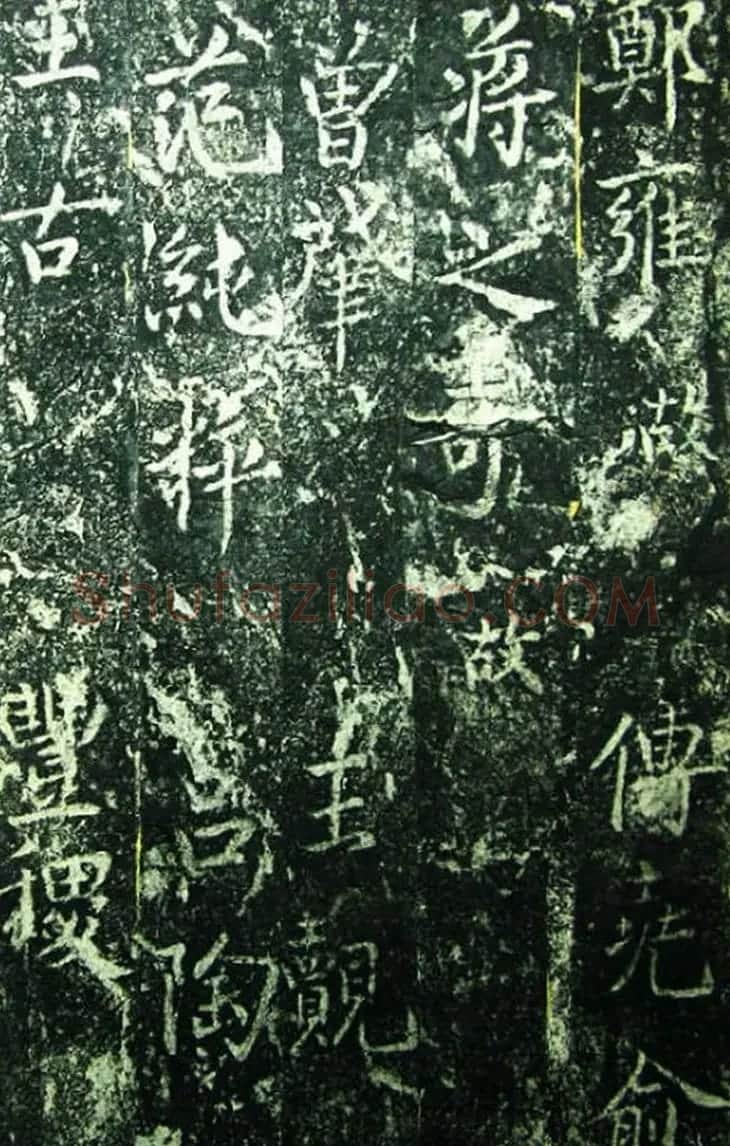 鄭雍 故 傅堯俞
蔣之奇 故
曾肇 王覿
范純粹 呂陶
王古 豐稷
Shufaziliao.COM